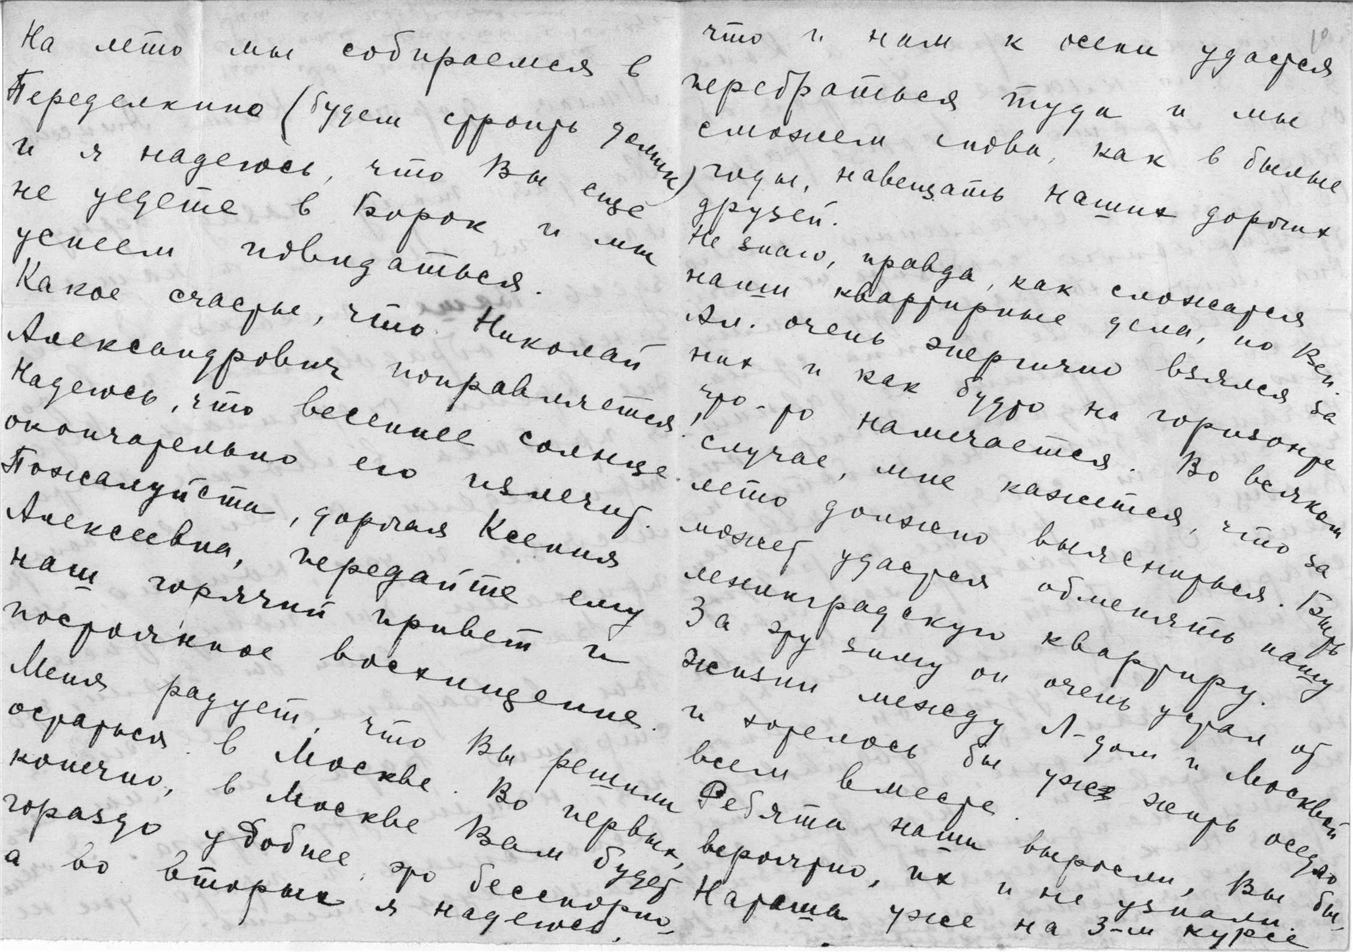 На лето мы собираемся в
Переделкино (будем строить домик)
и я надеюсь, что Вы еще
не уедете в Борок и мы
успеем повидаться.
Какое счастье, что Николай
Александрович поправляется.
Надеюсь, что весеннее солнце
окончательно его излечит.
Пожалуйста, дорогая Ксения
Алексеевна, передайте ему
наш горячий привет и
постоянное восхищение.
Меня радует, что Вы решили
остаться в Москве. Во первых,
конечно, в Москве Вам будет
гораздо удобнее, это бесспорно,
а во вторых я надеюсь,
что и нам к осени удастся
перебраться туда и мы
сможем снова, как в былые
годы, навещать наших дорогих
друзей.
Не знаю, правда, как сложатся
наши квартирные дела, но Вен.
Ал. очень энергично взялся за
них и как будто на горизонте
что-то намечается. Во всяком
случае, мне кажется, что за
лето должно выясниться. Быть
может удастся обменять нашу
ленинградскую квартиру.
За эту зиму он очень устал от
жизни между Л-дом и Москвой
и хотелось бы уже жить оседло
всем вместе.
Ребята наши выросли, Вы бы,
вероятно, их и не узнали.
Наташа уже на 3-м курсе